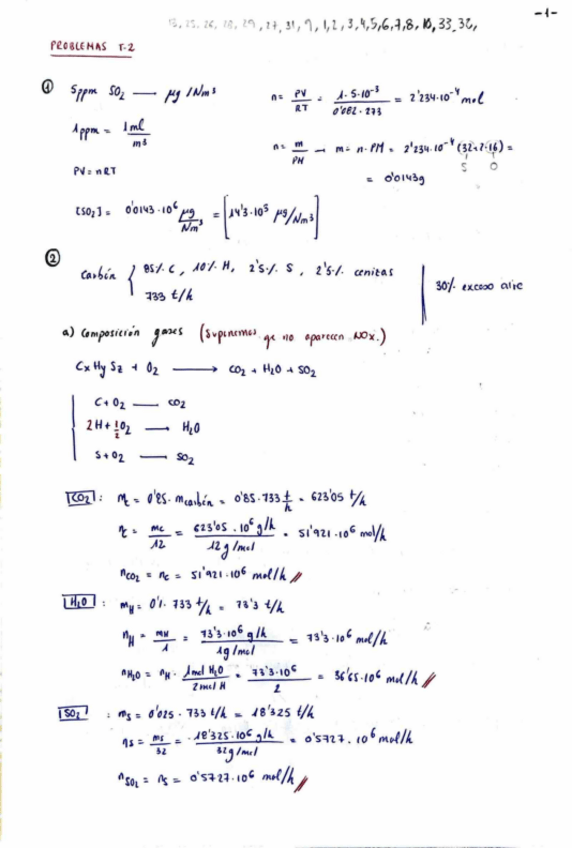 -1-
13, 25, 26, 28, 29, 27, 31, 9, 1, 2, 3, 4, 5, 6, 7, 8, 10, 33, 36,
PROBLEMAS T.2
① 5ppm SO2 — μg/Nm³
1ppm = 1ml / m³
PV = nRT
n = PV / RT = 1·5·10⁻³ / 0'082·273 = 2'234·10⁻⁴ mol
n = m / PM → m = n·PM = 2'234·10⁻⁴ (32+2·16) =
S O
= 0'0143g
[SO2] = 0'0143·10⁶ μg / Nm³ = [14'3·10³ μg/Nm³]
② Carbón { 85% C, 10% H, 2'5% S, 2'5% cenizas
733 t/h
30% exceso aire
a) Composición gases (Suponemos qe no aparecen NOx.)
CxHySz + O2 → CO2 + H2O + SO2
C + O2 — CO2
2H + 1/2 O2 → H2O
S + O2 — SO2
CO2: mc = 0'85·mcarbón = 0'85·733 t/h = 623'05 t/h
nc = mc / 12 = 623'05·10⁶ g/h / 12 g/mol = 51'921·10⁶ mol/h
nCO2 = nc = 51'921·10⁶ mol/h //
H2O: mH = 0'1·733 t/h = 73'3 t/h
nH = mH / 1 = 73'3·10⁶ g/h / 1g/mol = 73'3·10⁶ mol/h
nH2O = nH · 1mol H2O / 2mol H = 73'3·10⁶ / 2 = 36'65·10⁶ mol/h //
SO2: ms = 0'025·733 t/h = 18'325 t/h
ns = ms / 32 = 18'325·10⁶ g/h / 32g/mol = 0'5727·10⁶ mol/h
nSO2 = ns = 0'5727·10⁶ mol/h //